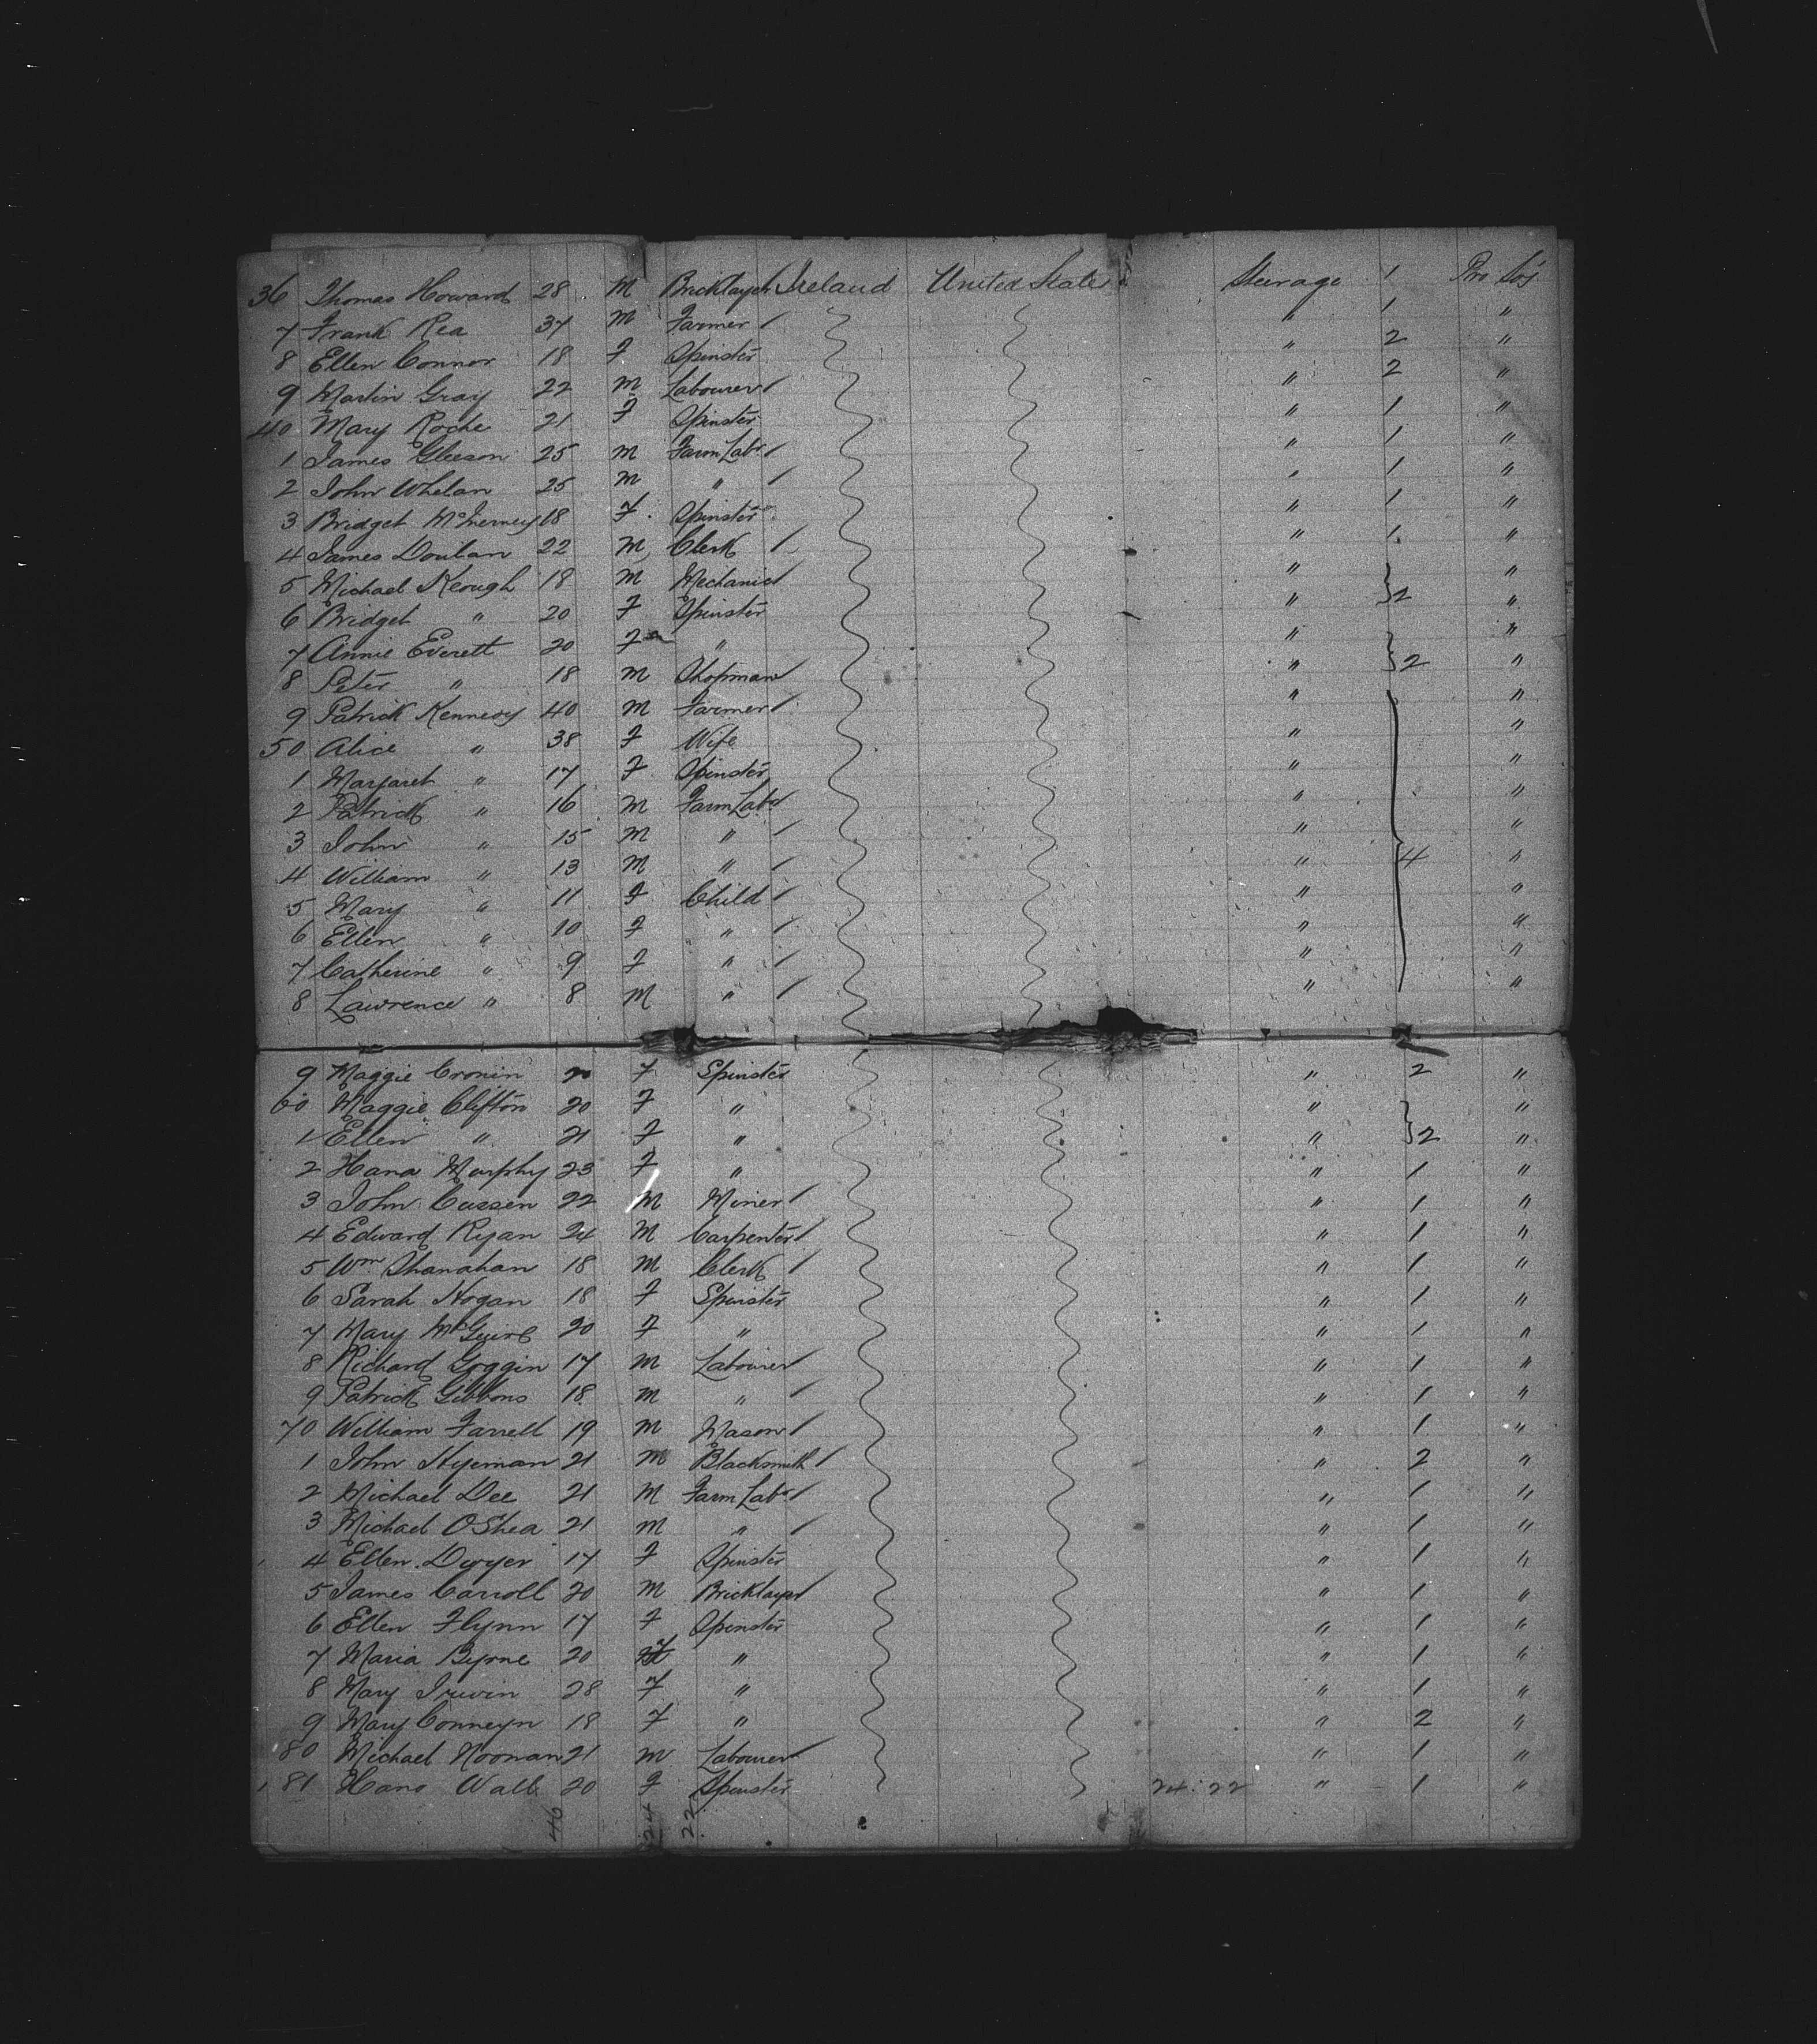 36 Thomas Howard 28 M Bricklayer Ireland United States Steerage 1 Pro Soj
7 Frank Rea 37 M Farmer " 1 "
8 Ellen Connor 18 F Spinster " 2 "
9 Martin Gray 22 M Labourer " 2 "
40 Mary Roche 21 F Spinster " 1 "
1 James Gleeson 25 M Farm Labr " 1 "
2 John Whelan 25 M " " 1 "
3 Bridget McInerney 18 F Spinster " 1 "
4 James Doulan 22 M Clerk " 1 "
5 Michael Keough 18 M Mechanic " "
6 Bridget " 20 F Spinster " 2 "
7 Annie Everett 20 F " " "
8 Peter " 18 M Shopman " 2 "
9 Patrick Kennedy 40 M Farmer " "
50 Alice " 38 F Wife " "
1 Margaret " 17 F Spinster " "
2 Patrick " 16 M Farm Labr " "
3 John " 15 M " " "
4 William " 13 M " " 4 "
5 Mary " 11 F Child " "
6 Ellen " 10 F " " "
7 Catherine " 9 F " " "
8 Lawrence " 8 M " " "
9 Maggie Cronin 20 F Spinster " 2 "
60 Maggie Clifton 20 F " " "
1 Ellen " 21 F " " 2 "
2 Hana Murphy 23 F " " 1 "
3 John Cussen 22 M Miner " 1 "
4 Edward Ryan 24 M Carpenter " 1 "
5 Wm Shanahan 18 M Clerk " 1 "
6 Sarah Hogan 18 F Spinster " 1 "
7 Mary McGuire 20 F " " 1 "
8 Richard Goggin 17 M Labourer " 1 "
9 Patrick Gibbons 18 M " " 1 "
70 William Farrell 19 M Mason " 1 "
1 John Hyeman 21 M Blacksmith " 2 "
2 Michael Dee 21 M Farm Labr " 1 "
3 Michael OShea 21 M " " 1 "
4 Ellen Dwyer 17 F Spinster " 1 "
5 James Carroll 20 M Bricklayer " 1 "
6 Ellen Flynn 17 F Spinster " 1 "
7 Maria Byrne 20 F " " 1 "
8 Mary Irwin 28 F " " 1 "
9 Mary Conneyn 18 F " " 2 "
80 Michael Noonan 21 M Labourer " 1 "
81 Hano Wall 20 F Spinster 24:22 " 1 "
46 24 22